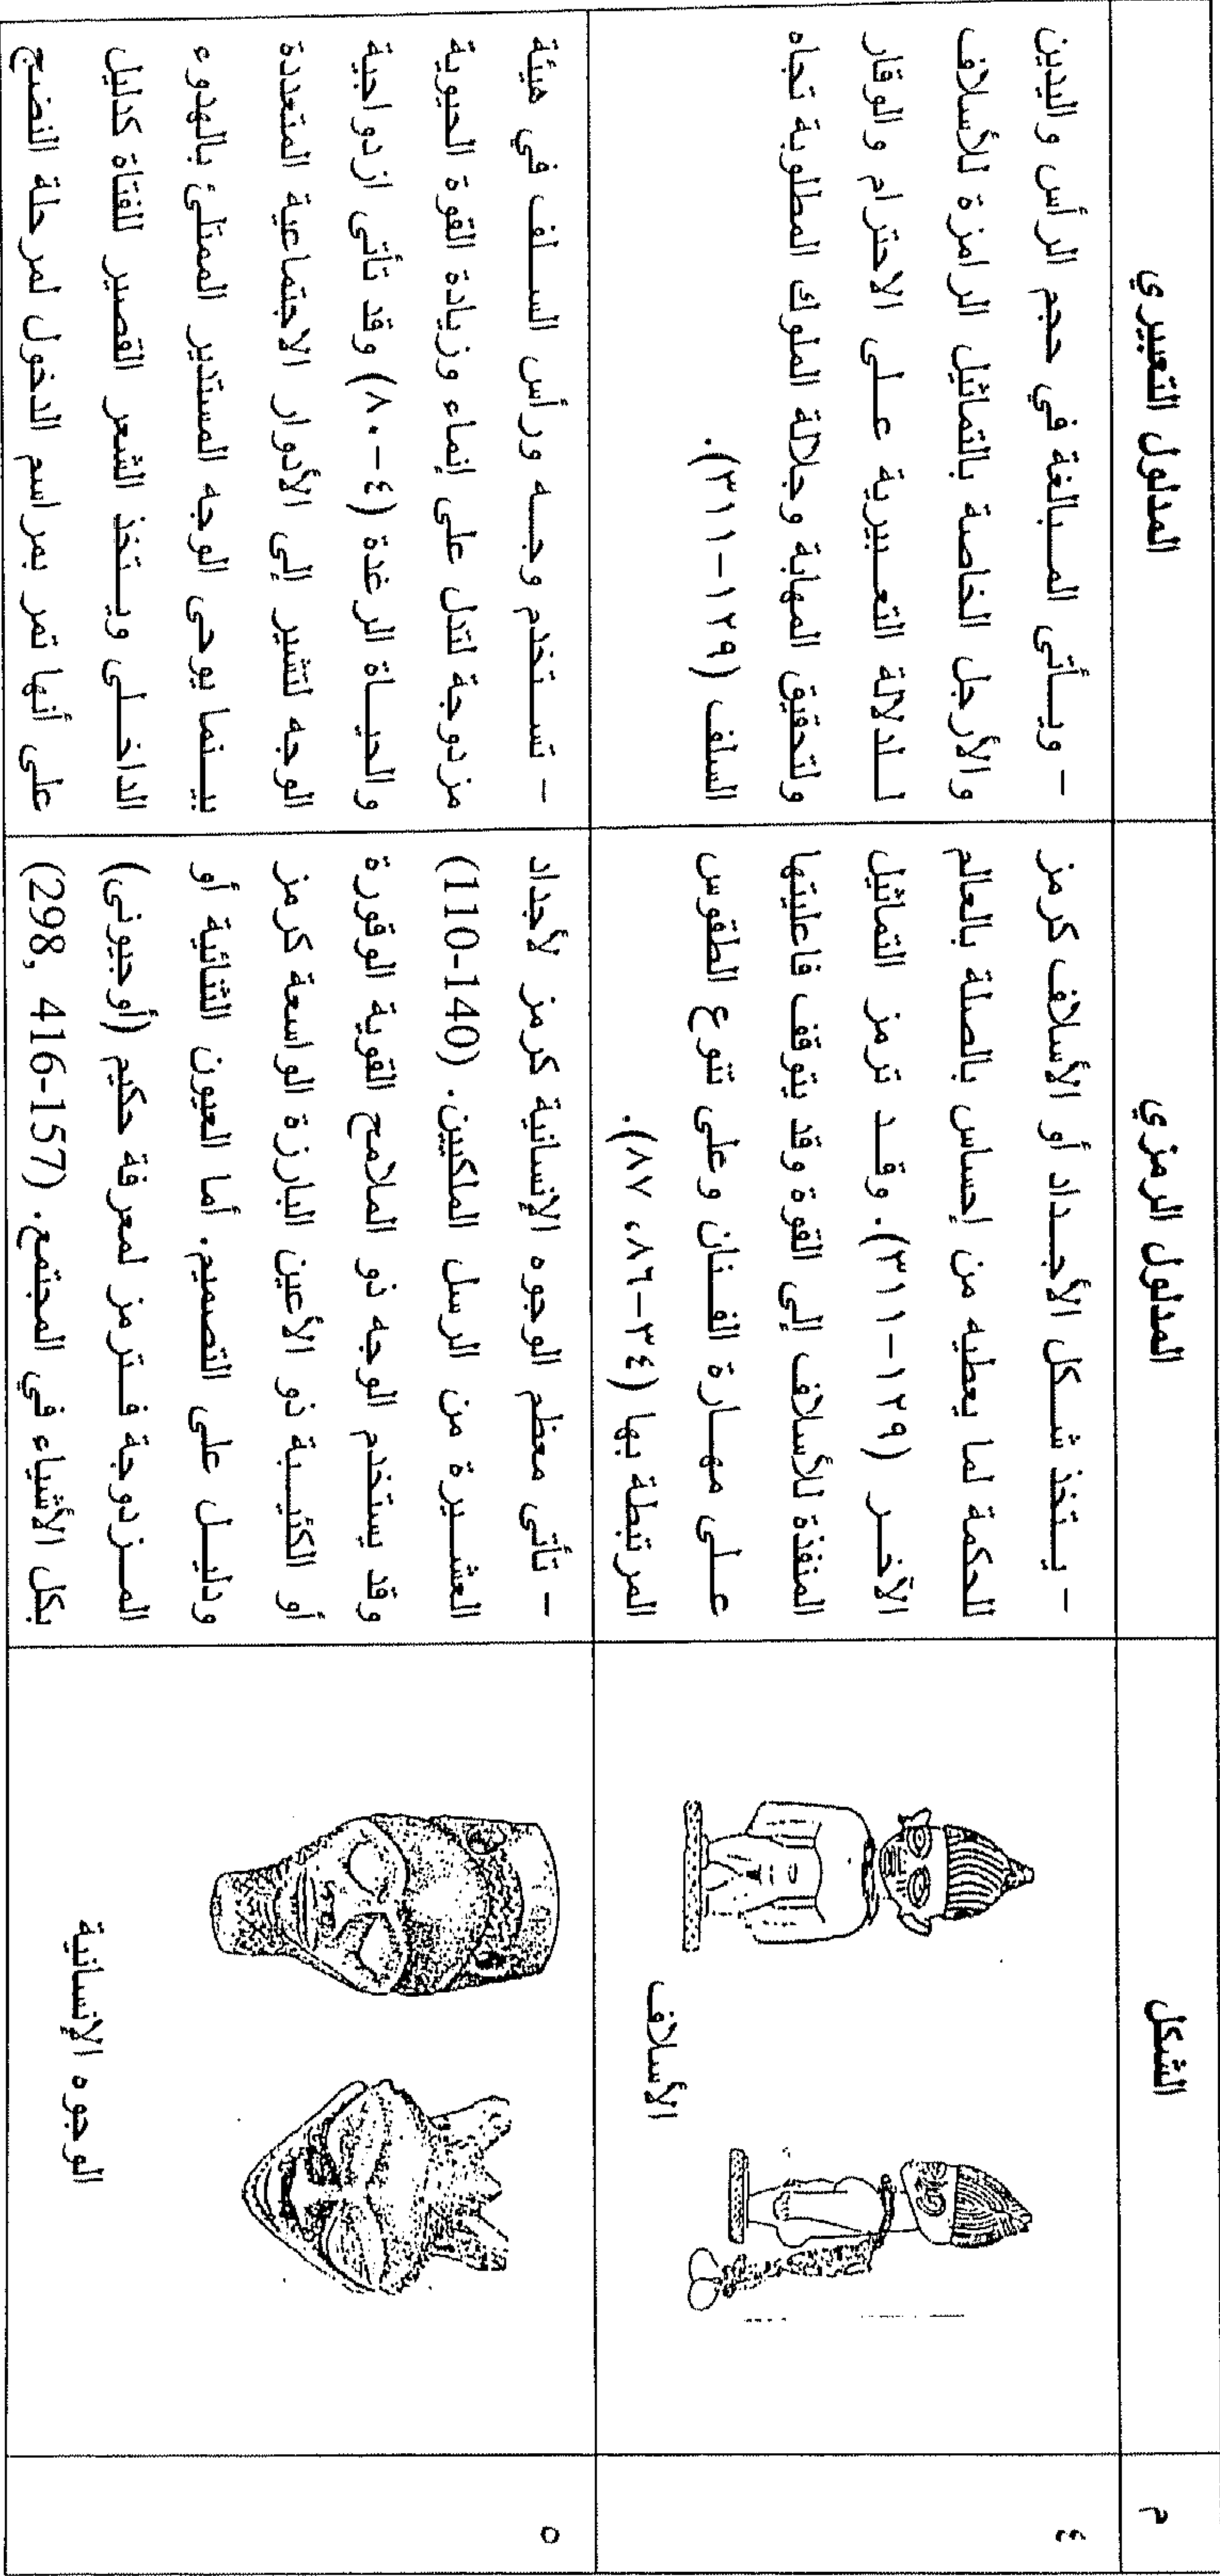 م
الشكل
المدلول الرمزي
المدلول التعبيري
٤
الأسلاف
- يتخذ شكل الأجداد أو الأسلاف كرمز
للحكمة لما يعطيه من إحساس بالصلة بالعالم
الآخر (١٢٩-٣١١). وقد ترمز التماثيل
المنفذة للأسلاف إلى القوة وقد يتوقف فاعليتها
على مهارة الفنان وعلى تنوع الطقوس
المرتبطة بها (٣٤-٨٦، ٨٧).
- ويأتى المبالغة في حجم الرأس واليدين
والأرجل الخاصة بالتماثيل الرامزة للأسلاف
للدلالة التعبيرية على الاحترام والوقار
ولتحقيق المهابة وجلالة الملوك المطلوبة تجاه
السلف (١٢٩-٣١١).
٥
الوجوه الإنسانية
- تأتى معظم الوجوه الإنسانية كرمز لأجداد
العشيرة من الرسل الملكيين. (110-140)
وقد يستخدم الوجه ذو الملامح القوية الوقورة
أو الكئيبة ذو الأعين البارزة الواسعة كرمز
ودليل على التصميم. أما العيون الثنائية أو
المزدوجة فترمز لمعرفة حكيم (أوجيونى)
بكل الأشياء في المجتمع. (157-416 ,298)
- تستخدم وجه ورأس السلف في هيئة
مزدوجة لتدل على إنماء وزيادة القوة الحيوية
والحياة الرغدة (٤-٨٠) وقد تأتى ازدواجية
الوجه لتشير إلى الأدوار الاجتماعية المتعددة
بينما يوحى الوجه المستدير الممتلئ بالهدوء
الداخلى ويتخذ الشعر القصير للفتاة كدليل
على أنها تمر بمراسم الدخول لمرحلة النضج